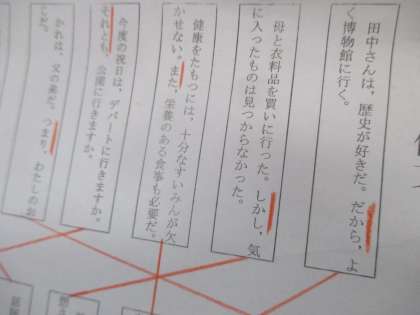 田中さんは、歴史が好きだ。だから、よ
く博物館に行く。
母と衣料品を買いに行った。しかし、気
に入ったものは見つからなかった。
健康をたもつには、十分なすいみんが欠
かせない。また、栄養のある食事も必要だ。
今度の祝日は、デパートに行きますか。
それとも、公園に行きますか。
かれは、父の弟だ。つまり、わたしのお
じだ。